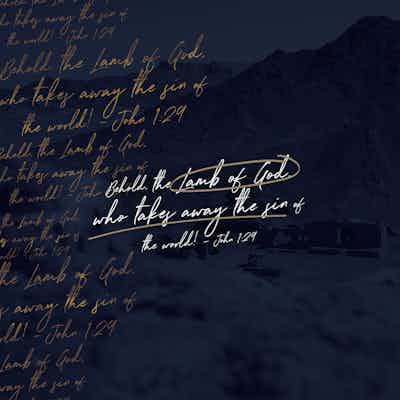 Behold the Lamb of God,
who takes away the sin of
the world! – John 1:29
Behold, the Lamb of God,
who takes away the sin of
the world! – John 1:29
Behold, the Lamb of God,
who takes away the sin of
the world! – John 1:29
who takes away the sin of
the world! – John 1:29
the Lamb of God
away the sin of
John 1:29
the Lamb of God,
away the sin of
John 1:29
Lamb of God,
away the sin of